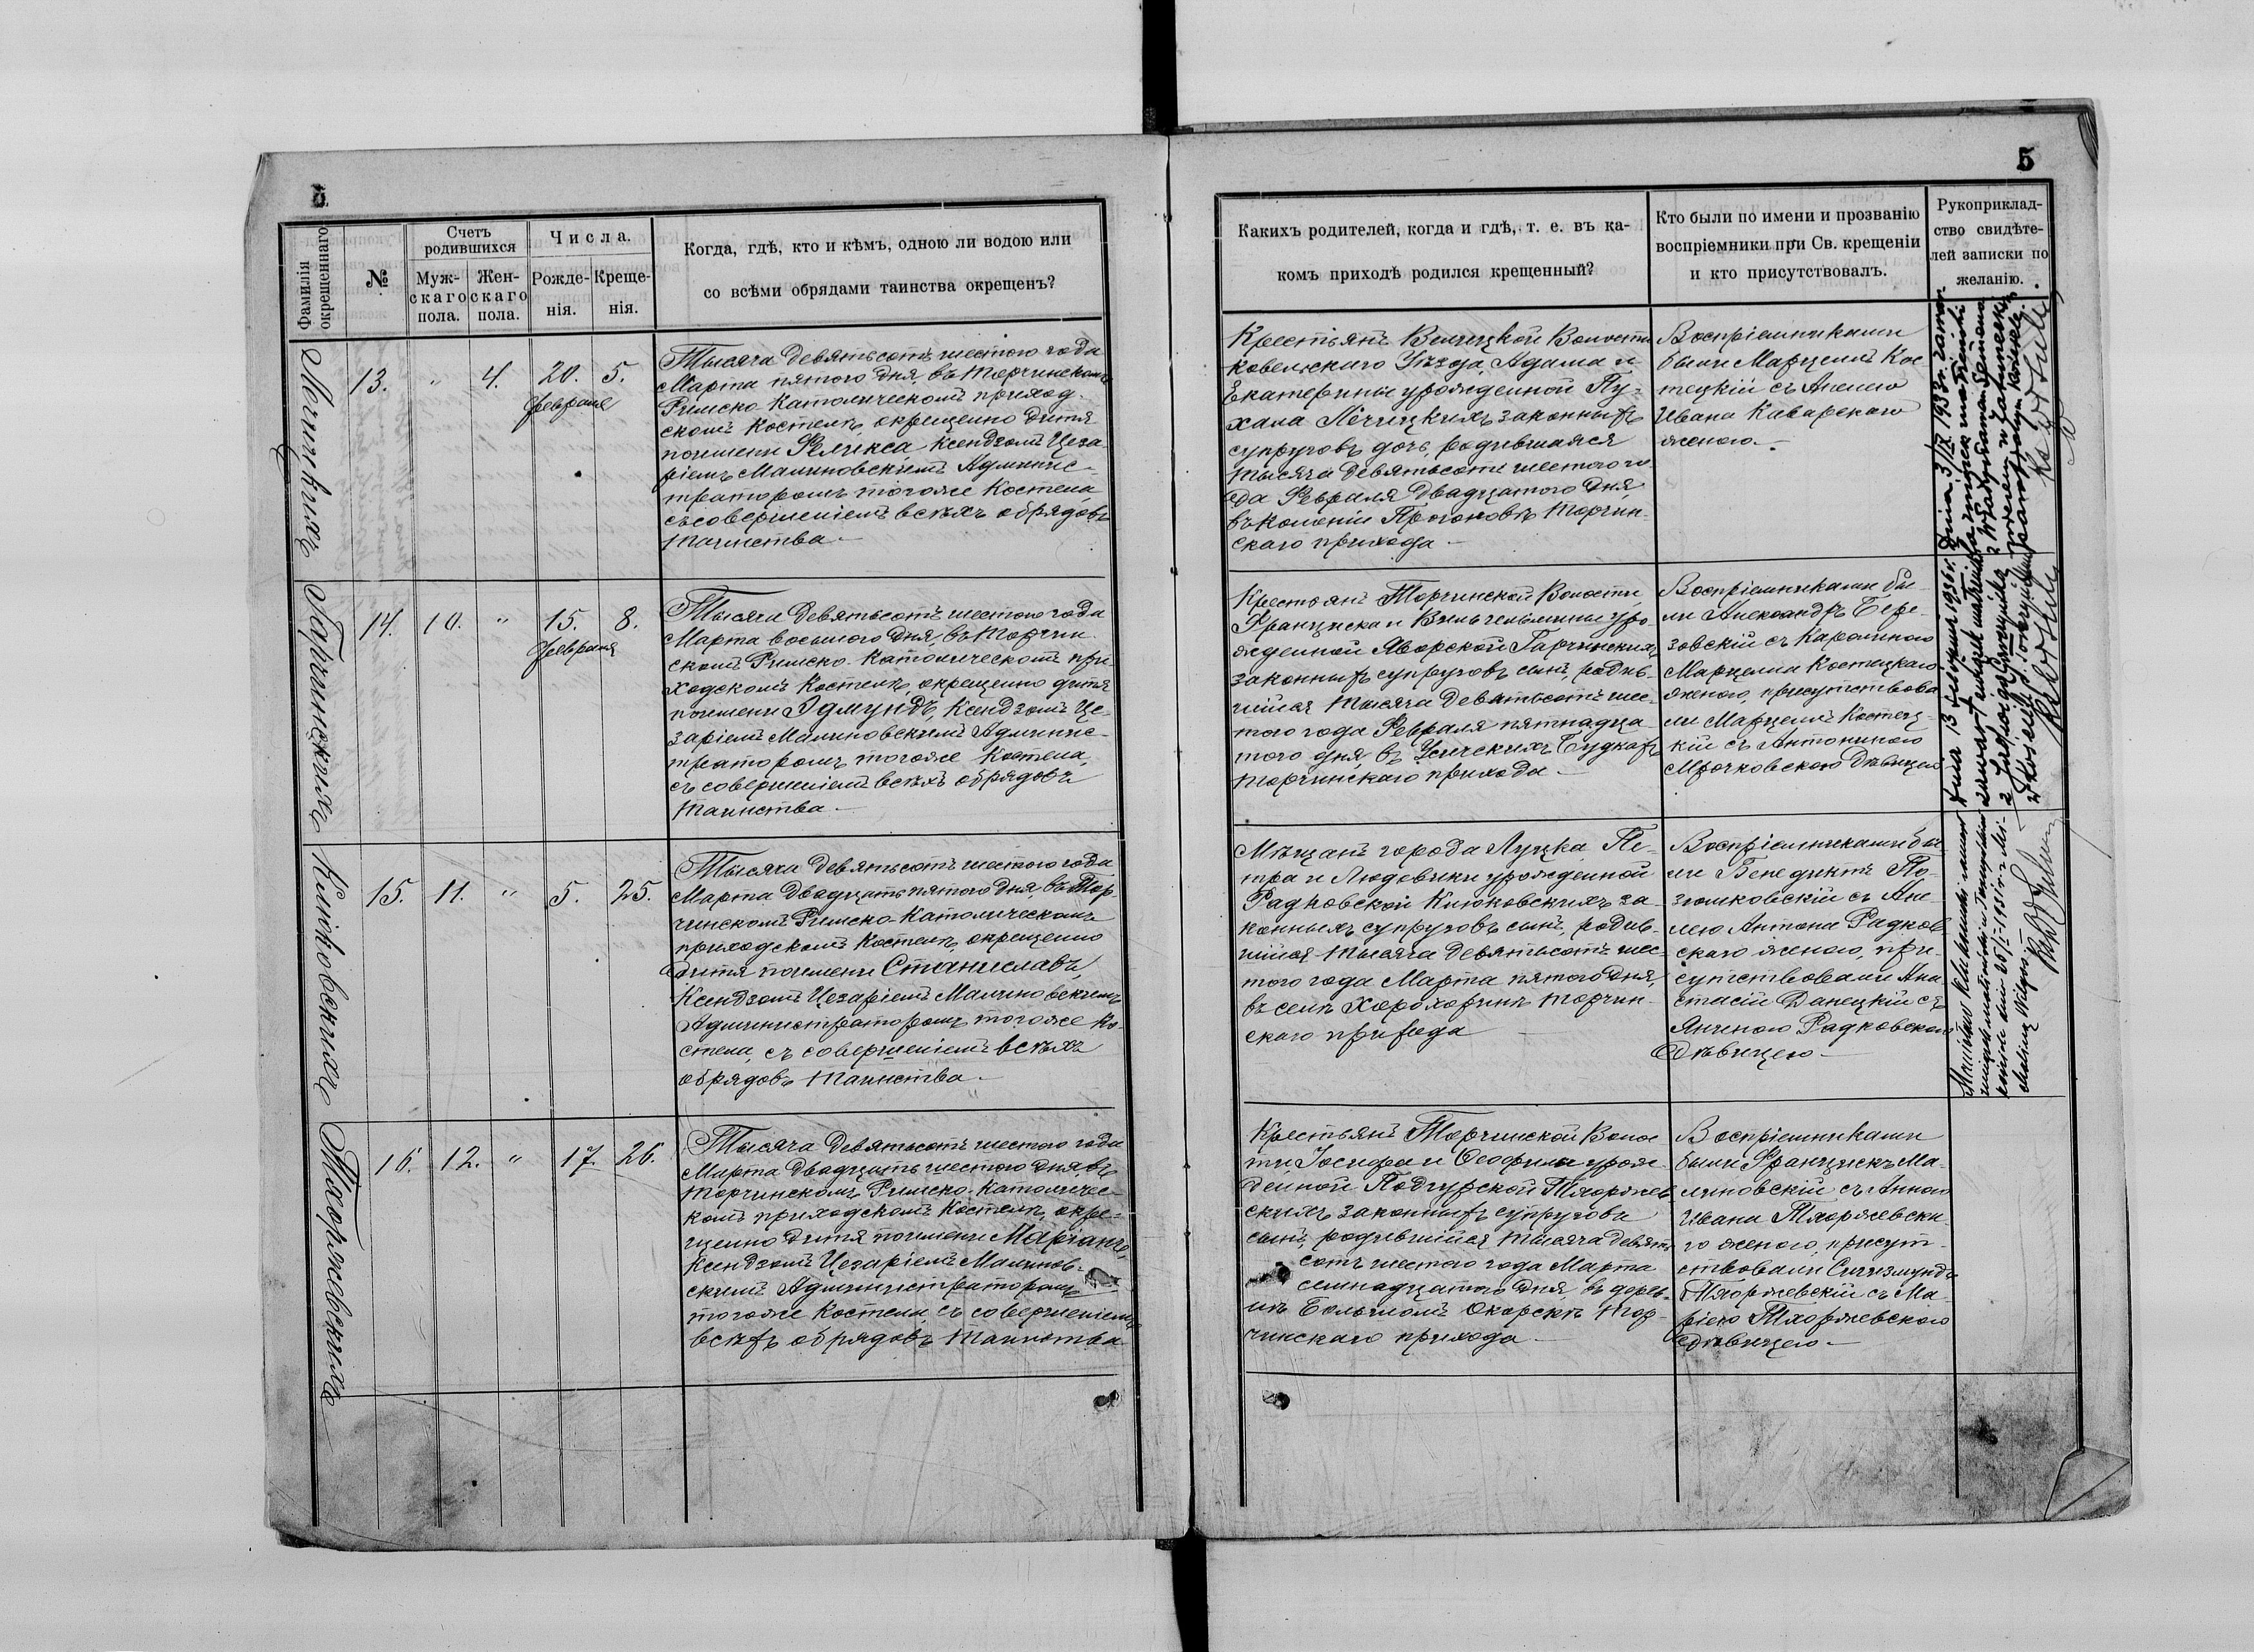 5
Фамилія окрещеннаго
№
Счетъ родившихся
Муж-скаго пола.
Жен-скаго пола.
Числа.
Рожде-нія.
Креще-нія.
Когда, гдѣ, кто и кѣмъ, одною ли водою или
со всѣми обрядами таинства окрещенъ?
13.
"
4.
20.
Февраля
5.
Тысяча девятьсотъ шестого года
Марта пятого дня, въ Торчинскомъ
Римско-Католическомъ приход-
скомъ Костелѣ, окрещено дитя
по имени Феликса, Ксендзомъ Цеза-
ріемъ Малиновскимъ Админис-
траторомъ тогоже Костела,
съ совершеніемъ всѣхъ обрядовъ
таинства.
Гарчинскихъ
14.
10.
"
15.
Февраля
8.
Тысяча девятьсотъ шестого года
Марта восьмого дня, въ Торчин-
скомъ Римско-Католическомъ при-
ходскомъ Костелѣ, окрещено дитя
по имени Эдмундъ, Ксендзомъ Це-
заріемъ Малиновскимъ Админис-
траторомъ тогоже Костела,
съ совершеніемъ всѣхъ обрядовъ
таинства.
Клюковскихъ
15.
11.
"
5.
25.
Тысяча девятьсотъ шестого года
Марта двадцать пятого дня, въ Тор-
чинскомъ Римско-Католическомъ
приходскомъ Костелѣ, окрещено
дитя по имени Станиславъ,
Ксендзомъ Цезаріемъ Малиновскимъ
Администраторомъ тогоже Ко-
стела, съ совершеніемъ всѣхъ
обрядовъ таинства.
Тхоржевскихъ
16.
12.
"
17.
26.
Тысяча девятьсотъ шестого года
Марта двадцать шестого дня, въ
Торчинскомъ Римско-Католичес-
комъ приходскомъ Костелѣ, окре-
щено дитя по имени Маріанъ,
Ксендзомъ Цезаріемъ Малинов-
скимъ Администраторомъ
тогоже Костела, съ совершеніемъ
всѣхъ обрядовъ таинства.
5
Какихъ родителей, когда и гдѣ, т. е. въ ка-
комъ приходѣ родился крещенный?
Кто были по имени и прозванію
воспріемники при Св. крещеніи
и кто присутствовалъ.
Рукоприклад-
ство свидѣте-
лей записки по
желанію.
Крестьянъ Велицкой Волости
Ковельскаго Уѣзда, Адама и
Екатерины урожденной Пу-
хала законныхъ
супруговъ дочь, родившаяся
тысяча девятьсотъ шестого го-
да Февраля двадцатого дня,
въ колоніи Торчин-
скаго прихода.
Воспріемниками
были Марцелій Кос-
тецкій съ Анелею
Ивана Каварскаго
женою.
Крестьянъ Торчинской Волости,
Франциска и Вильгельмины уро-
жденной Яворской Гарчинскихъ
законныхъ супруговъ сынъ, родив-
шійся тысяча девятьсотъ шес-
того года Февраля пятнадца-
того дня, въ Усичскихъ Будкахъ
Торчинскаго прихода.
Воспріемниками бы-
ли Александръ Бере-
зовскій съ Каролиною
Марцелія Костецкаго
женою, присутствова-
ли Марцелій Костец-
кій съ Антониною
Мрочковскою дѣвицею
Мѣщанъ города Луцка, Пе-
тра и Людовики урожденной
Радковской Клюковскихъ за-
конныхъ супруговъ сынъ, родив-
шійся тысяча девятьсотъ шес-
того года Марта пятого дня,
въ селѣ Хорохоринѣ Торчин-
скаго прихода
Воспріемниками бы-
ли Бенедиктъ
съ Ане-
лею Антона Радков-
скаго женою, при-
сутствовали Ана-
стасій Данецкій съ
Яниною Радковскою
дѣвицею.
Крестьянъ Торчинской Волос-
ти, Іосифа и Ѳеофили урож-
денной Подгурской Тхоржев-
скихъ законныхъ супруговъ
сынъ, родившійся тысяча девять-
сотъ шестого года Марта
семнадцатого дня, въ дерев-
нѣ Большомъ Окорскѣ Тор-
чинскаго прихода.
Воспріемниками
были Францискъ Ма-
линовскій съ Анною
Ивана Тхоржевска-
го женою, присут-
ствовали Сигизмундъ
Тхоржевскій съ Ма-
ріею Тхоржевскою
дѣвицею.